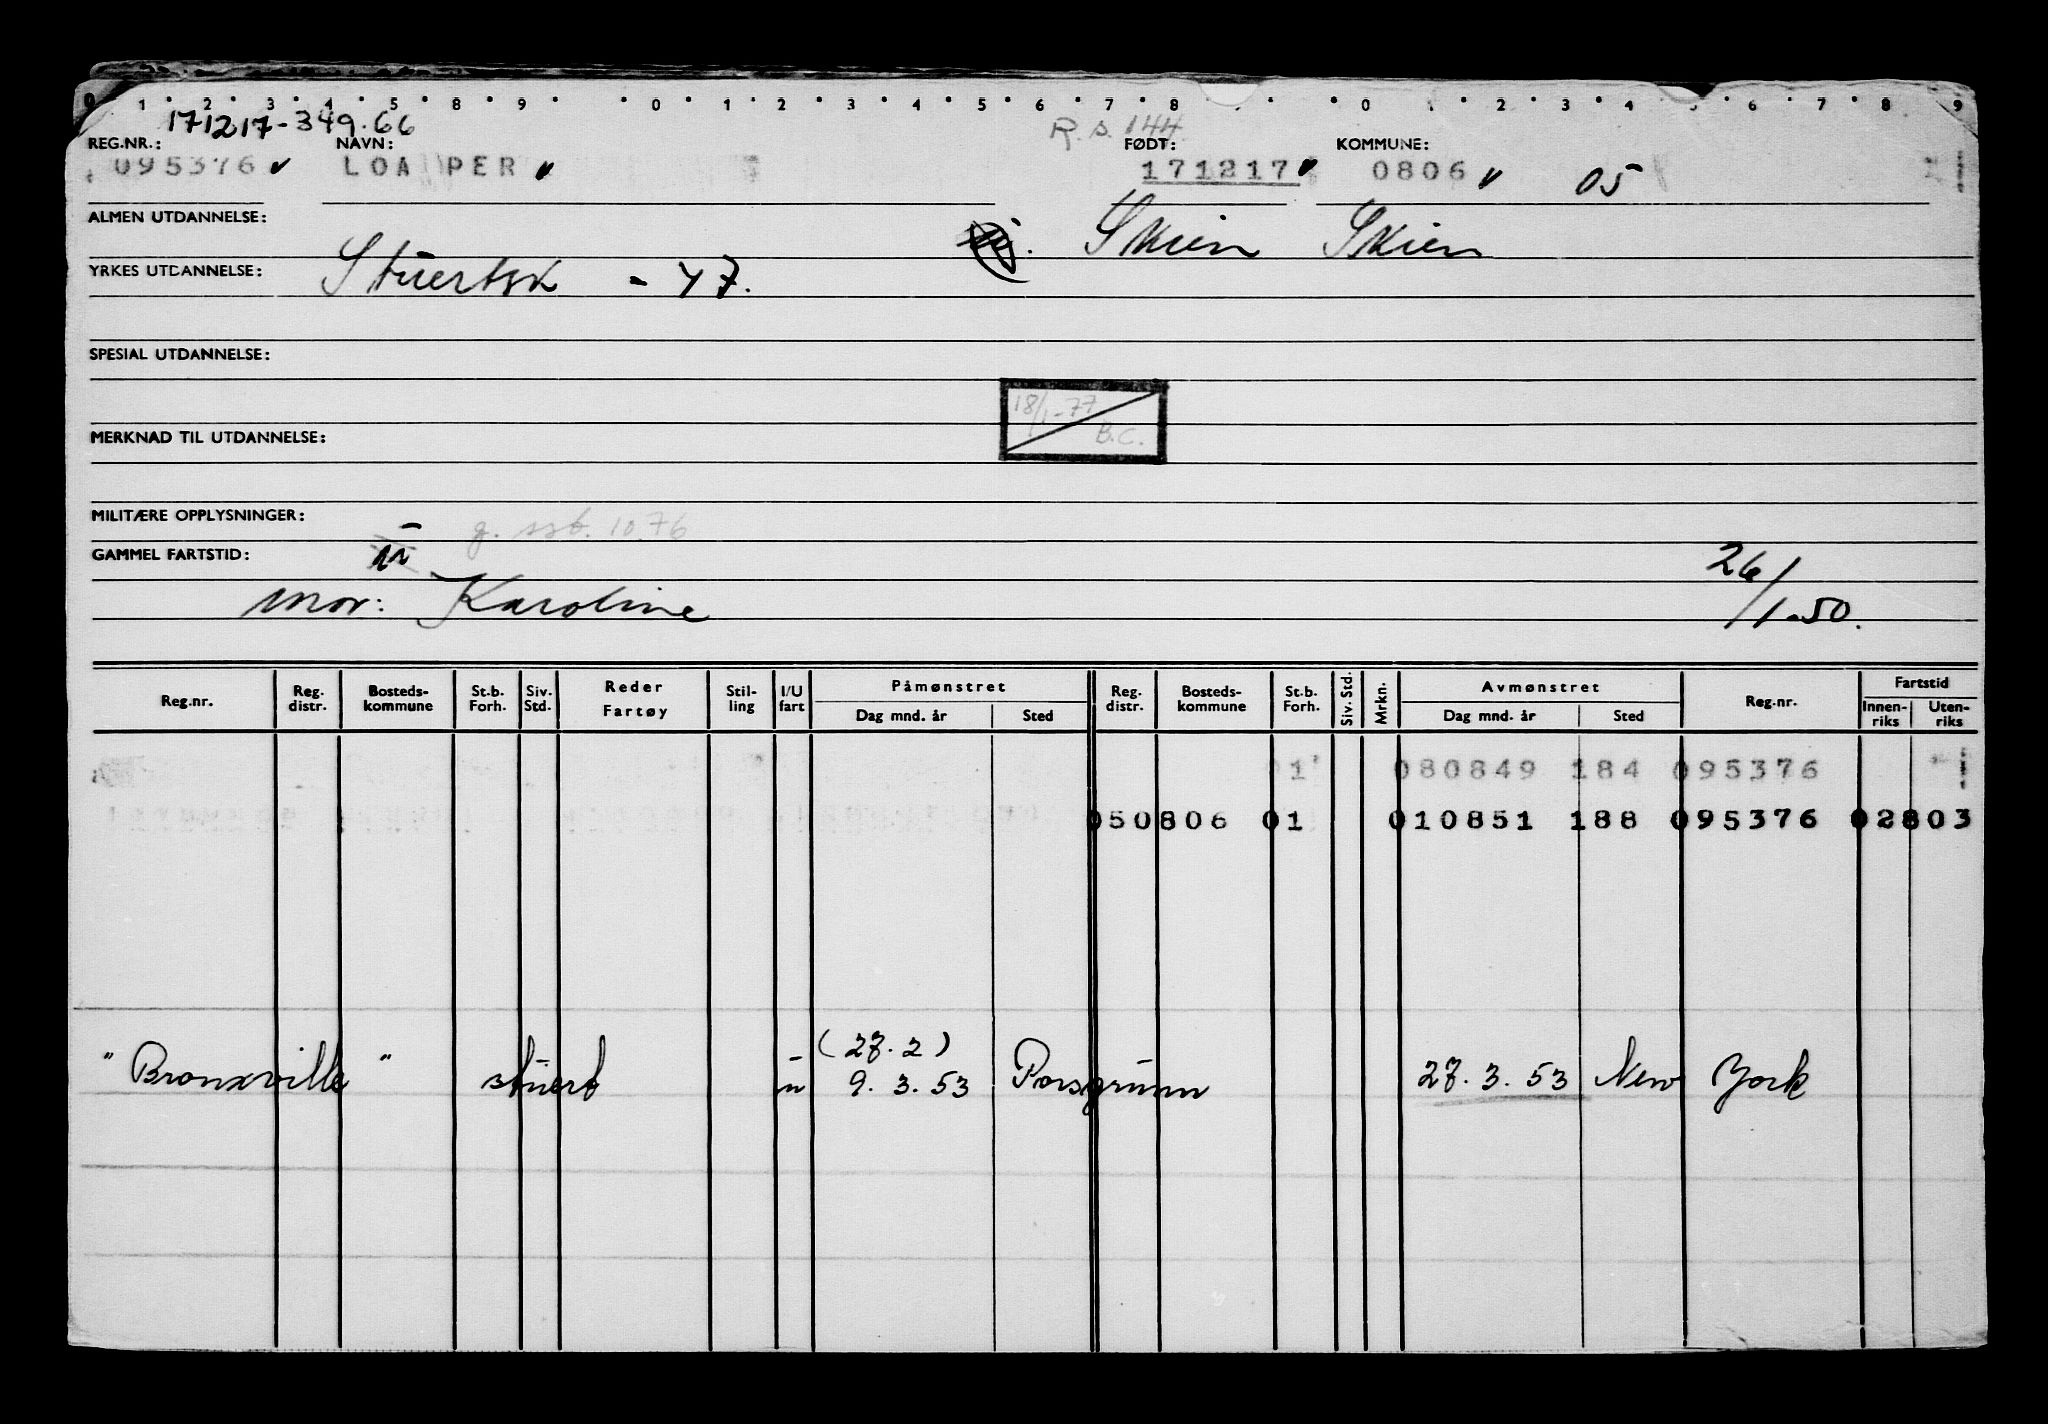 0 1 2 3 4 5 8 9 0 1 2 3 4 5 6 7 8 0 1 2 3 4 5 6 7 8 9
171217-349.66
R.s. 144
REG.NR.: NAVN: FØDT: KOMMUNE:
095376 LOA PER 171217 0806 05
ALMEN UTDANNELSE: Skien Skien
YRKES UTDANNELSE: Stuertsk - 47.
SPESIAL UTDANNELSE:
18/1-77
B.C.
MERKNAD TIL UTDANNELSE:
MILITÆRE OPPLYSNINGER:
g. ssb. 10.76
GAMMEL FARTSTID: 26/1-50.
mor: Karoline
Reg.nr. Reg. distr. Bosteds-kommune St.b. Forh. Siv. Std. Reder Fartøy Stil-ling I/U fart Påmønstret Dag mnd. år Sted Reg. distr. Bosteds-kommune St.b. Forh. Siv. Std. Mrkn. Avmønstret Dag mnd. år Sted Reg.nr. Fartstid Innen-riks Uten-riks
01 080849 184 095376
050806 01 010851 188 095376 02803
(27.2)
"Bronxville" stuert u 9.3.53 Porsgrunn 27.3.53 New York